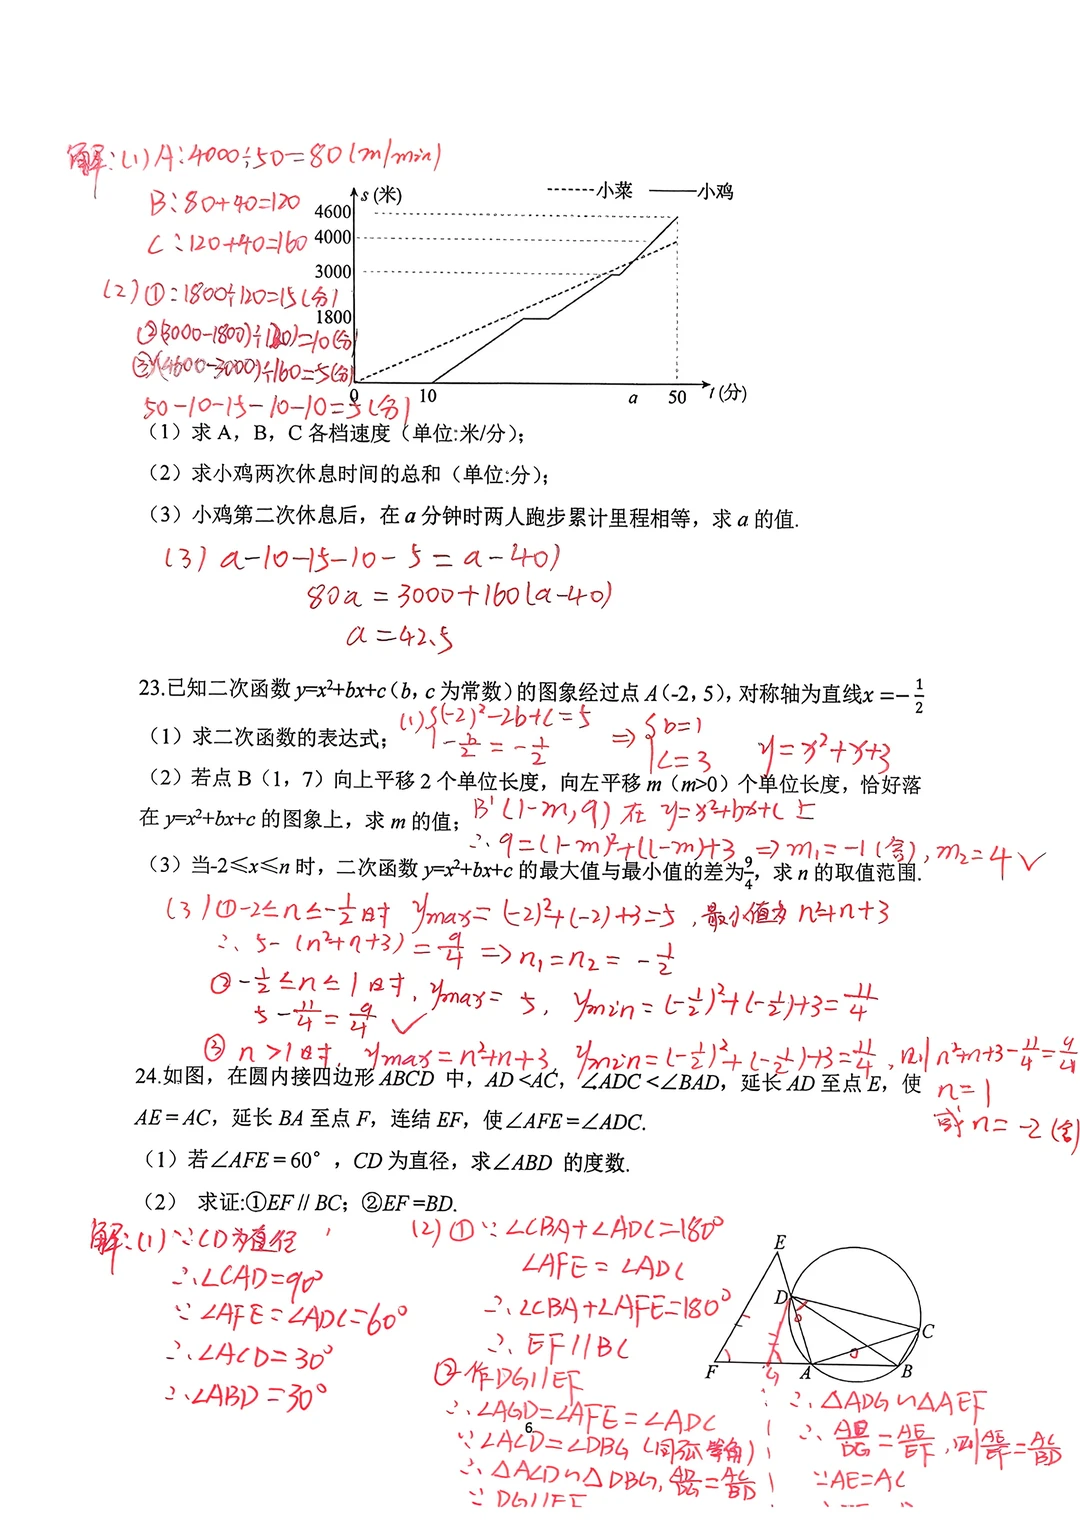 解:(1)A:4000÷50=80(m/min)
B:80+40=120
C:120+40=160
(2)①:1800÷120=15(分)
②(3000-1800)÷120)=10(分)
③(4600-3000)÷160=5(分)
50-10-15-10-10=5(分)
s(米)
小菜 小鸡
4600
4000
3000
1800
0 10 a 50 t(分)
(1)求 A,B,C 各档速度(单位:米/分);
(2)求小鸡两次休息时间的总和(单位:分);
(3)小鸡第二次休息后,在 a 分钟时两人跑步累计里程相等,求 a 的值.
(3) a-10-15-10-5=a-40)
80a=3000+160(a-40)
a=42.5
23.已知二次函数 y=x²+bx+c(b,c 为常数)的图象经过点 A(-2,5),对称轴为直线x=-1/2
(1)求二次函数的表达式;
(1){(-2)²-2b+c=5
-b/2=-1/2
⇒{b=1
c=3
y=x²+x+3
(2)若点 B(1,7)向上平移 2 个单位长度,向左平移 m(m>0)个单位长度,恰好落
在 y=x²+bx+c 的图象上,求 m 的值;
B'(1-m,9)在 y=x²+bx+c 上
∴9=(1-m)²+(1-m)+3 ⇒m₁=-1(舍),m₂=4✓
(3)当-2≤x≤n 时,二次函数 y=x²+bx+c 的最大值与最小值的差为9/4,求 n 的取值范围.
(3)①-2≤n≤-1/2时 ymax=(-2)²+(-2)+3=5,最小值为 n²+n+3
∴5-(n²+n+3)=9/4 ⇒n₁=n₂=-1/2
②-1/2≤n≤1时,ymax=5, ymin=(-1/2)²+(-1/2)+3=11/4
5-11/4=9/4 ✓
③n>1时,ymax=n²+n+3,ymin=(-1/2)²+(-1/2)+3=11/4,则n²+n+3-11/4=9/4
n=1
或n=-2(舍)
24.如图,在圆内接四边形 ABCD 中,AD<AC,∠ADC<∠BAD,延长 AD 至点 E,使
AE=AC,延长 BA 至点 F,连结 EF,使∠AFE=∠ADC.
(1)若∠AFE=60°,CD 为直径,求∠ABD 的度数.
(2) 求证:①EF // BC;②EF=BD.
解:(1)∵CD为直径
∴∠CAD=90°
∵∠AFE=∠ADC=60°
∴∠ACD=30°
∴∠ABD=30°
(2)①∵∠CBA+∠ADC=180°
∠AFE=∠ADC
∴∠CBA+∠AFE=180°
∴EF//BC
②作DG//EF
∴∠AGD=∠AFE=∠ADC
∵∠ACD=∠DBG(同弧等角)
∴△ACD∽△DBG,AD/DG=AC/BD
∵DG//FE
E
D
C
F G A B
∴△ADG∽△AEF
∴AD/DG=AE/EF,则AE/EF=AC/BD
∵AE=AC
6